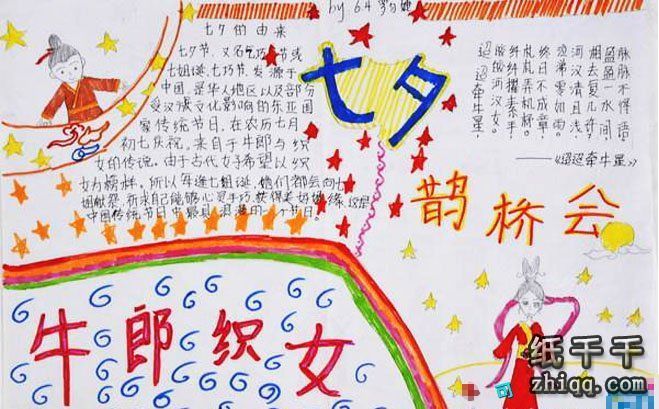 by 64
七夕的由来
七夕节,又名乞巧节或
七姐诞、七巧节,发源于
中国,是华人地区以及部分
受汉族文化影响的东亚国
家传统节日,在农历七月
初七庆祝,来自于牛郎与织
女的传说。由于古代女子希望以织
女为榜样,所以每逢七姐诞,她们都会向七
姐献祭,祈求自己能够心灵手巧、获得美好姻缘,这是
中国传统节日中最具浪漫的一个节日。
七夕
迢迢牵牛星,
皎皎河汉女。
纤纤擢素手,
札札弄机杼。
终日不成章,
泣涕零如雨。
河汉清且浅,
相去复几许。
盈盈一水间,
脉脉不得语。
——《迢迢牵牛星》
鹊桥会
牛郎织女
纸千千
zhiqq.com